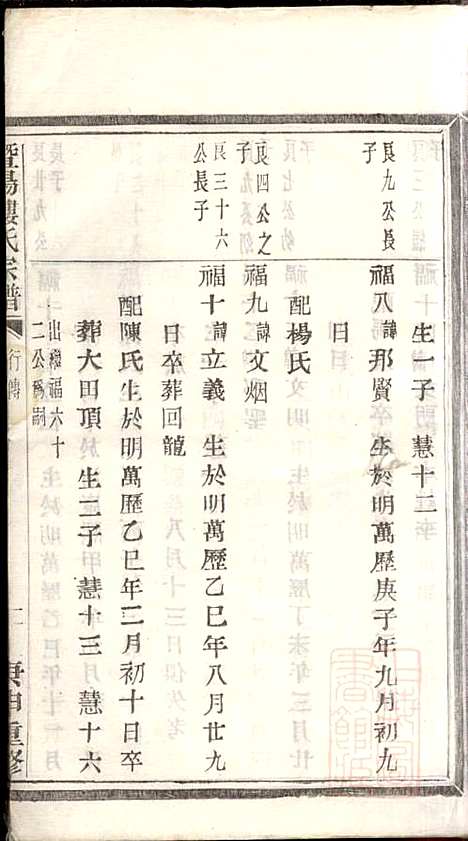 生一子 慧十二
良九公長
子
福八諱那賢 生於明萬歷庚子年九月初九
日
配楊氏
良四公之
子
福九諱文烟
良三十六
公長子
福十諱立義 生於明萬歷乙巳年八月廿九
日卒葬回龍
配陳氏生於明萬歷乙巳年二月初十日卒
葬大田頂 生二子 慧十三 慧十六
出繼福六十
二公爲嗣
暨陽樓氏宗譜
行傳
庚申重修